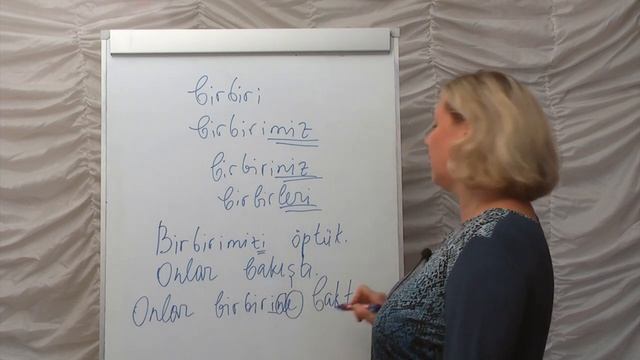 birbiri
birbirimiz
birbiriniz
birbirleri
Birbirimizi öptük.
Onlar bakıştı.
Onlar birbirine bakt